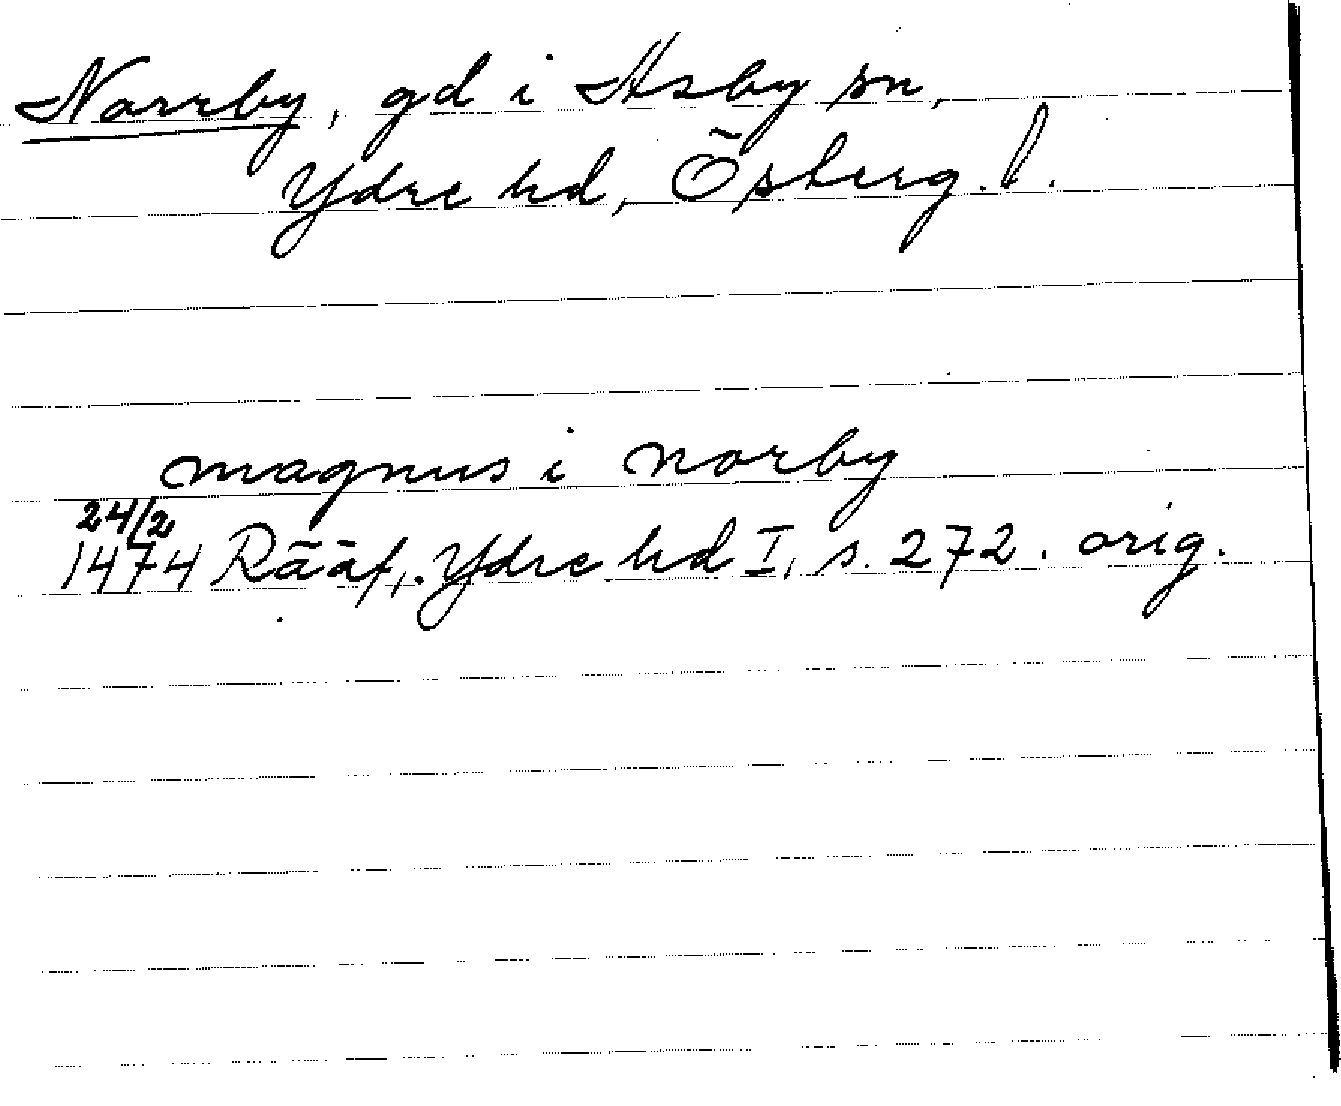 Norrby, gd i Asby sn,
Ydre hd, Österg. l.
magnus i norby
24/2
1474 Rääf, Ydre hd I, s. 272. orig.